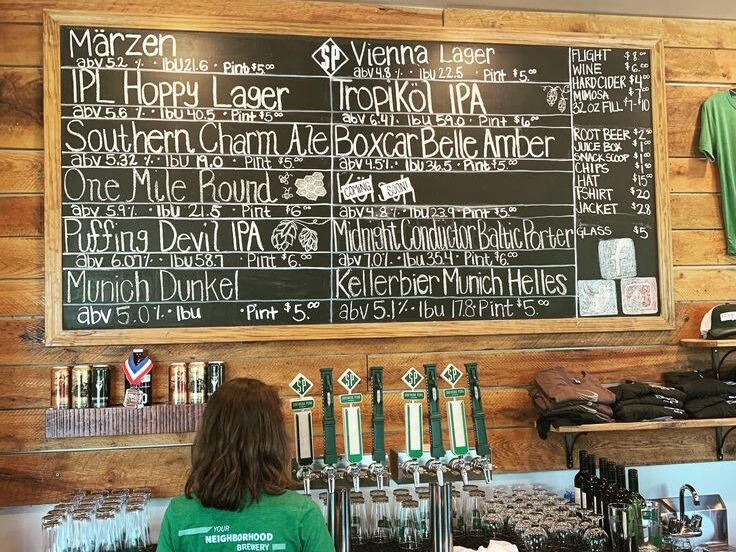 Märzen
abv 5.2 %. Ibu 21.6 · Pint $5.00
IPL Hoppy Lager
abv 5.6 %. Ibu 40.5 · Pint $5.00
Southern Charm Ale
abv 5.32 %. Ibu 19.0 · Pint $5.00
One Mile Round
abv 5.9%. Ibu 21.5 · Pint $6.00
Puffing Devil IPA
abv 6.07%. Ibu 58.7 · Pint $6.00
Munich Dunkel
abv 5.0%. Ibu · Pint $5.00
SP
Vienna Lager
abv 4.8%. Ibu 22.5 · Pint $5.00
TropiKöl IPA
abv 6.4%. Ibu 59.0 · Pint $6.00
Boxcar Belle Amber
abv 4.51%. Ibu 36.5 · Pint $5.00
COMING SOON!
abv 4.8%. Ibu 23.9 · Pint $5.00
Midnight Conductor Baltic Porter
abv 7.0%. Ibu 35.4 · Pint $6.00
Kellerbier Munich Helles
abv 5.1%. Ibu 17.8 · Pint $5.00
FLIGHT $8.00
WINE $6.00
HARD CIDER $4
MIMOSA $7
32oz FILL $7-$10
ROOT BEER $2.50
JUICE BOX $1.00
SNACK SCOOP $1.00
CHIPS $1.50
HAT $15.00
TSHIRT $20
JACKET $28
GLASS $5
f
SP
SP
SP
SP
YOUR
NEIGHBORHOOD
BREWERY